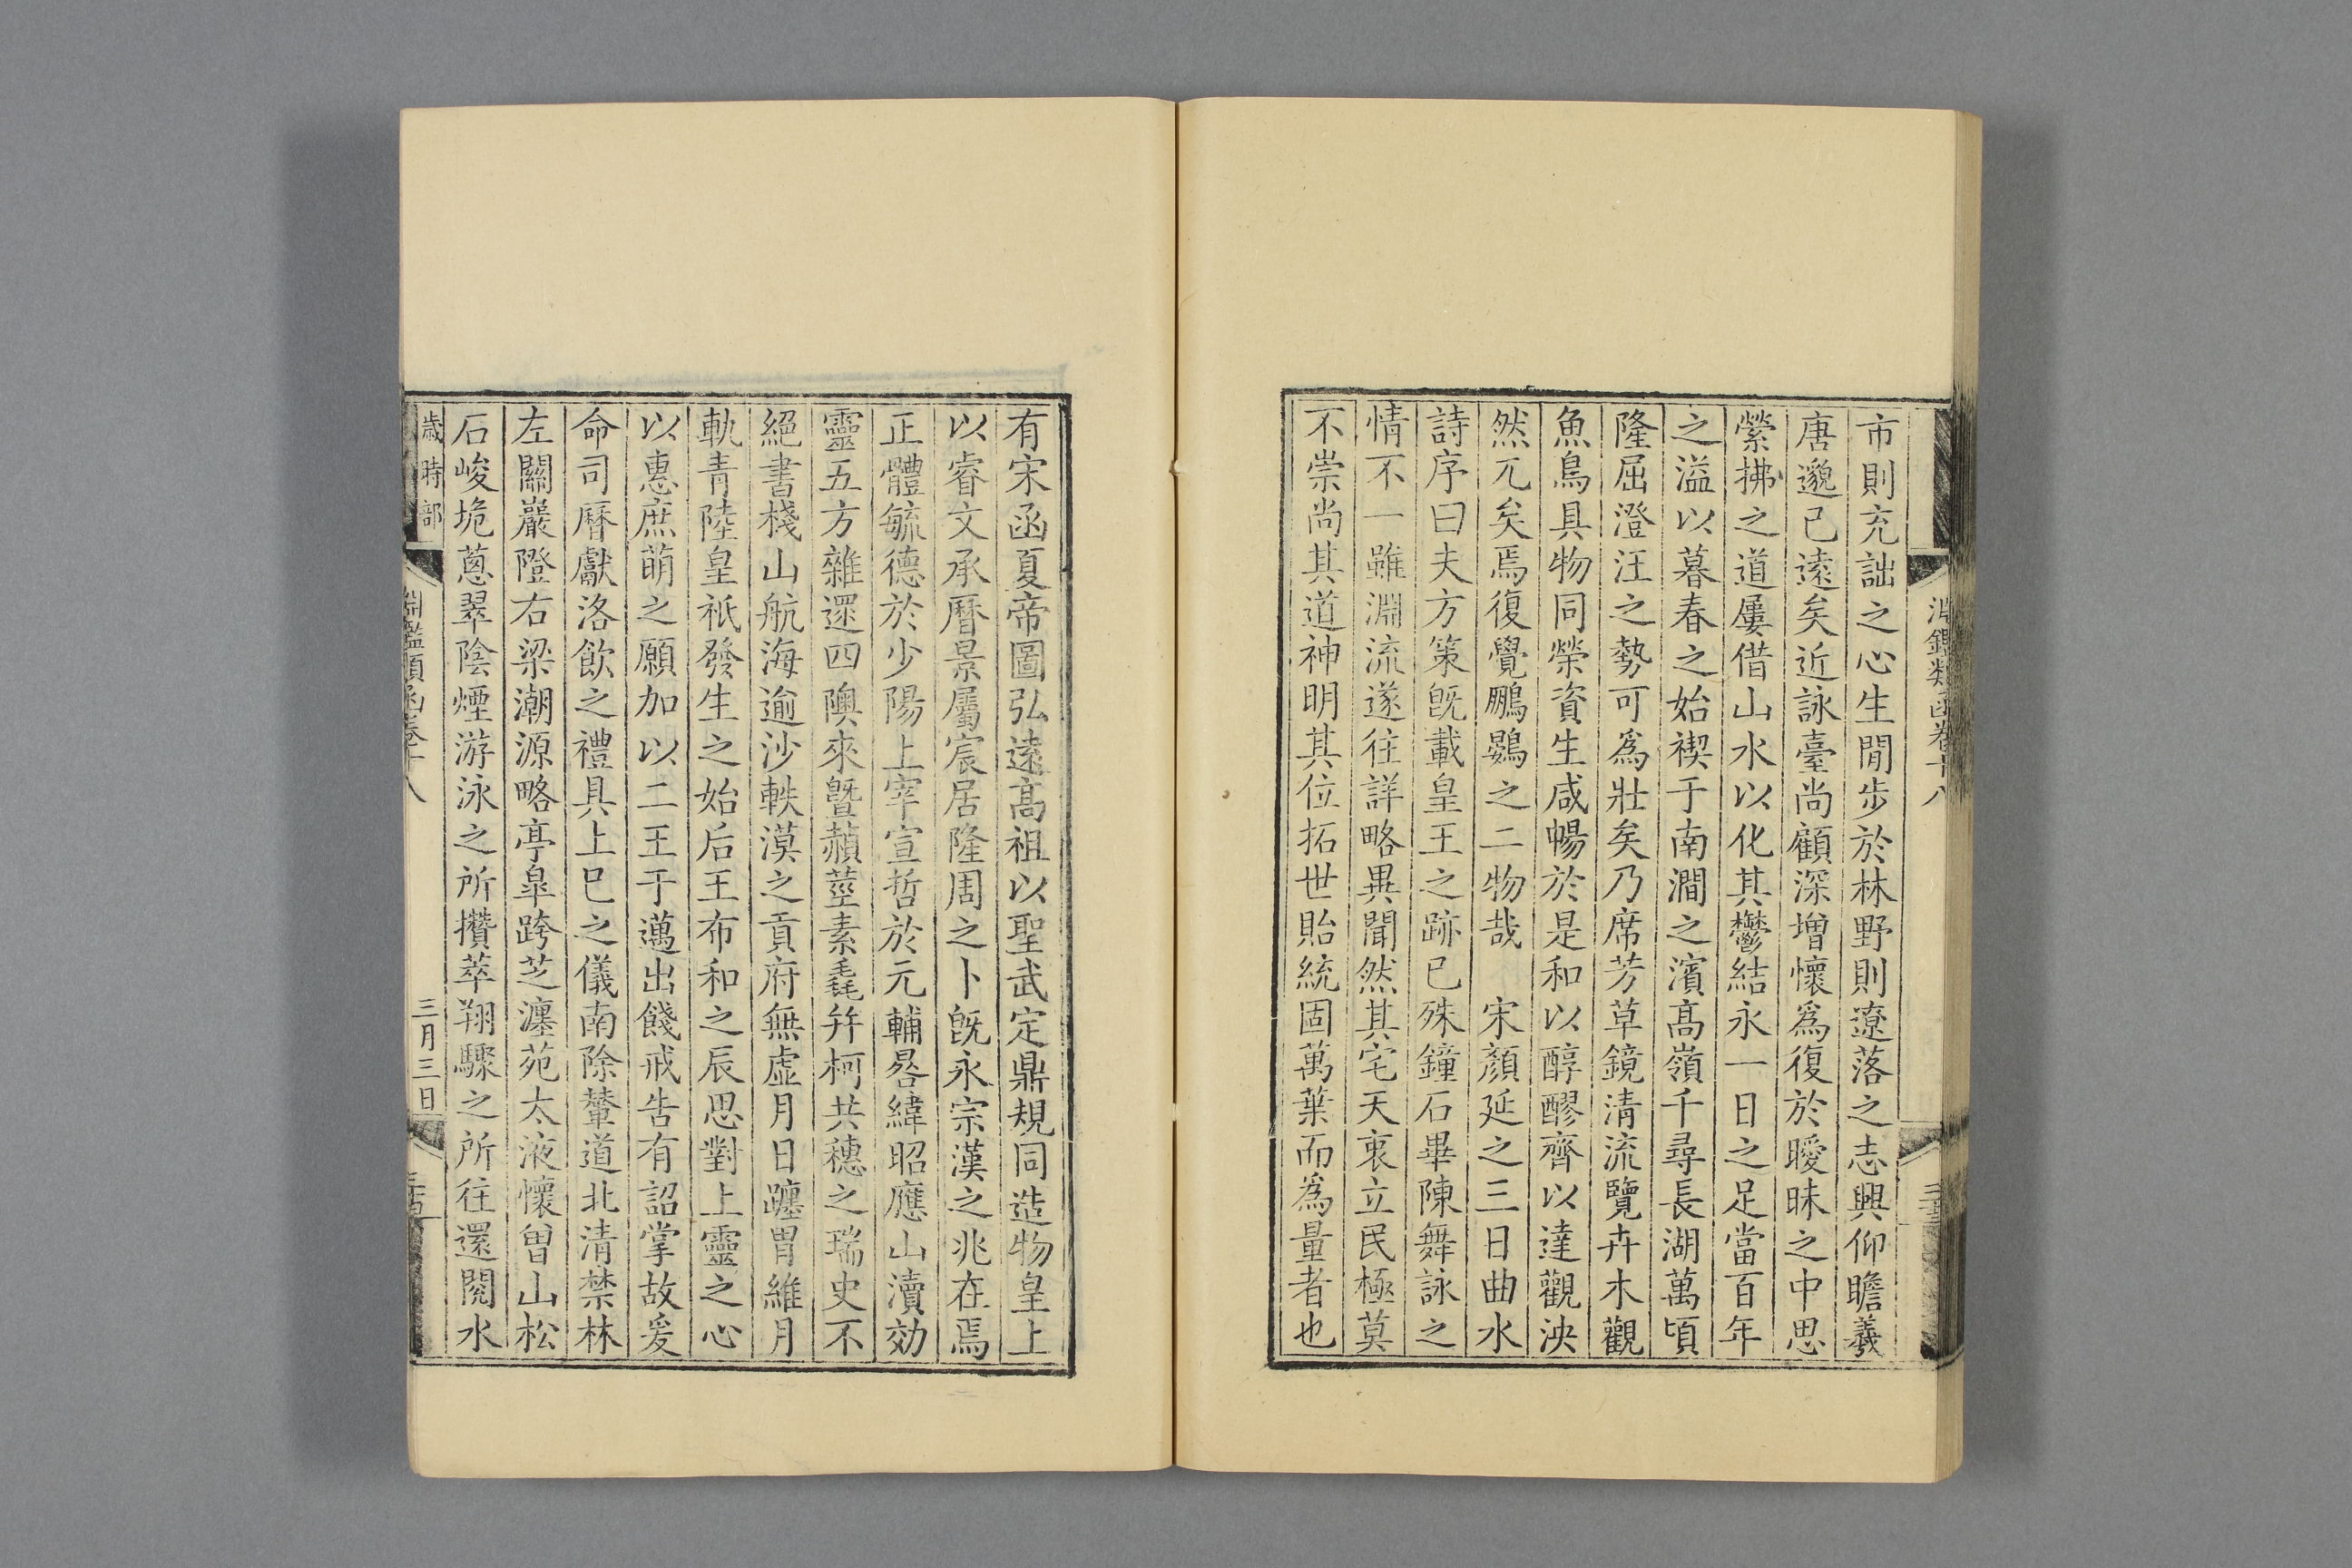 淵鑑類函卷十八
市則充詘之心生閒步於林野則遼落之志興仰瞻羲
唐邈已遠矣近詠臺尚顧深增懷為復於曖昧之中思
縈拂之道屢借山水以化其鬱結永一日之足當百年
之溢以暮春之始禊于南澗之濱高嶺千尋長湖萬頃
隆屈澄汪之勢可為壯矣乃席芳草鏡清流覽卉木觀
魚鳥具物同榮資生咸暢於是和以醇醪齊以達觀泱
然兀矣焉復覺鵬鷃之二物哉　宋顏延之三日曲水
詩序曰夫方策既載皇王之跡已殊鐘石畢陳舞詠之
情不一雖淵流遂往詳略異聞然其宅天衷立民極莫
不崇尚其道神明其位拓世貽統固萬葉而為量者也
有宋函夏帝圖弘遠高祖以聖武定鼎規同造物皇上
以睿文承曆景屬宸居隆周之卜既永宗漢之兆在焉
正體毓德於少陽上宰宣哲於元輔晷緯昭應山瀆効
靈五方雜遝四隩來曁赬莖素毳幷柯共穗之瑞史不
絕書棧山航海逾沙軼漠之貢府無虛月日躔胃維月
軌青陸皇祇發生之始后王布和之辰思對上靈之心
以惠庶萌之願加以二王于邁出餞戒告有詔掌故爰
命司曆獻洛飲之禮具上巳之儀南除輦道北清禁林
左關巖隥右梁潮源略亭臯跨芝廛苑太液懷曾山松
石峻垝蔥翠陰煙游泳之所攢萃翔驟之所往還閱水
歲時部
淵鑑類函卷十八
三月三日